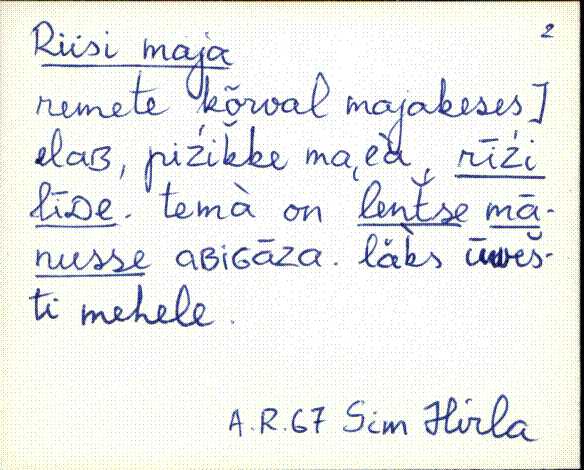 2
Riisi maja
remete kõrval majakeses]
elaʙ, piži̬ḱḱe maꞏeà, rīźi
līᴅe. temà on lent̆še mā-
nusse ᴀʙiɢāza. läks ǖvĕš-
ti mehele.
A.R.67 Sim Hirla